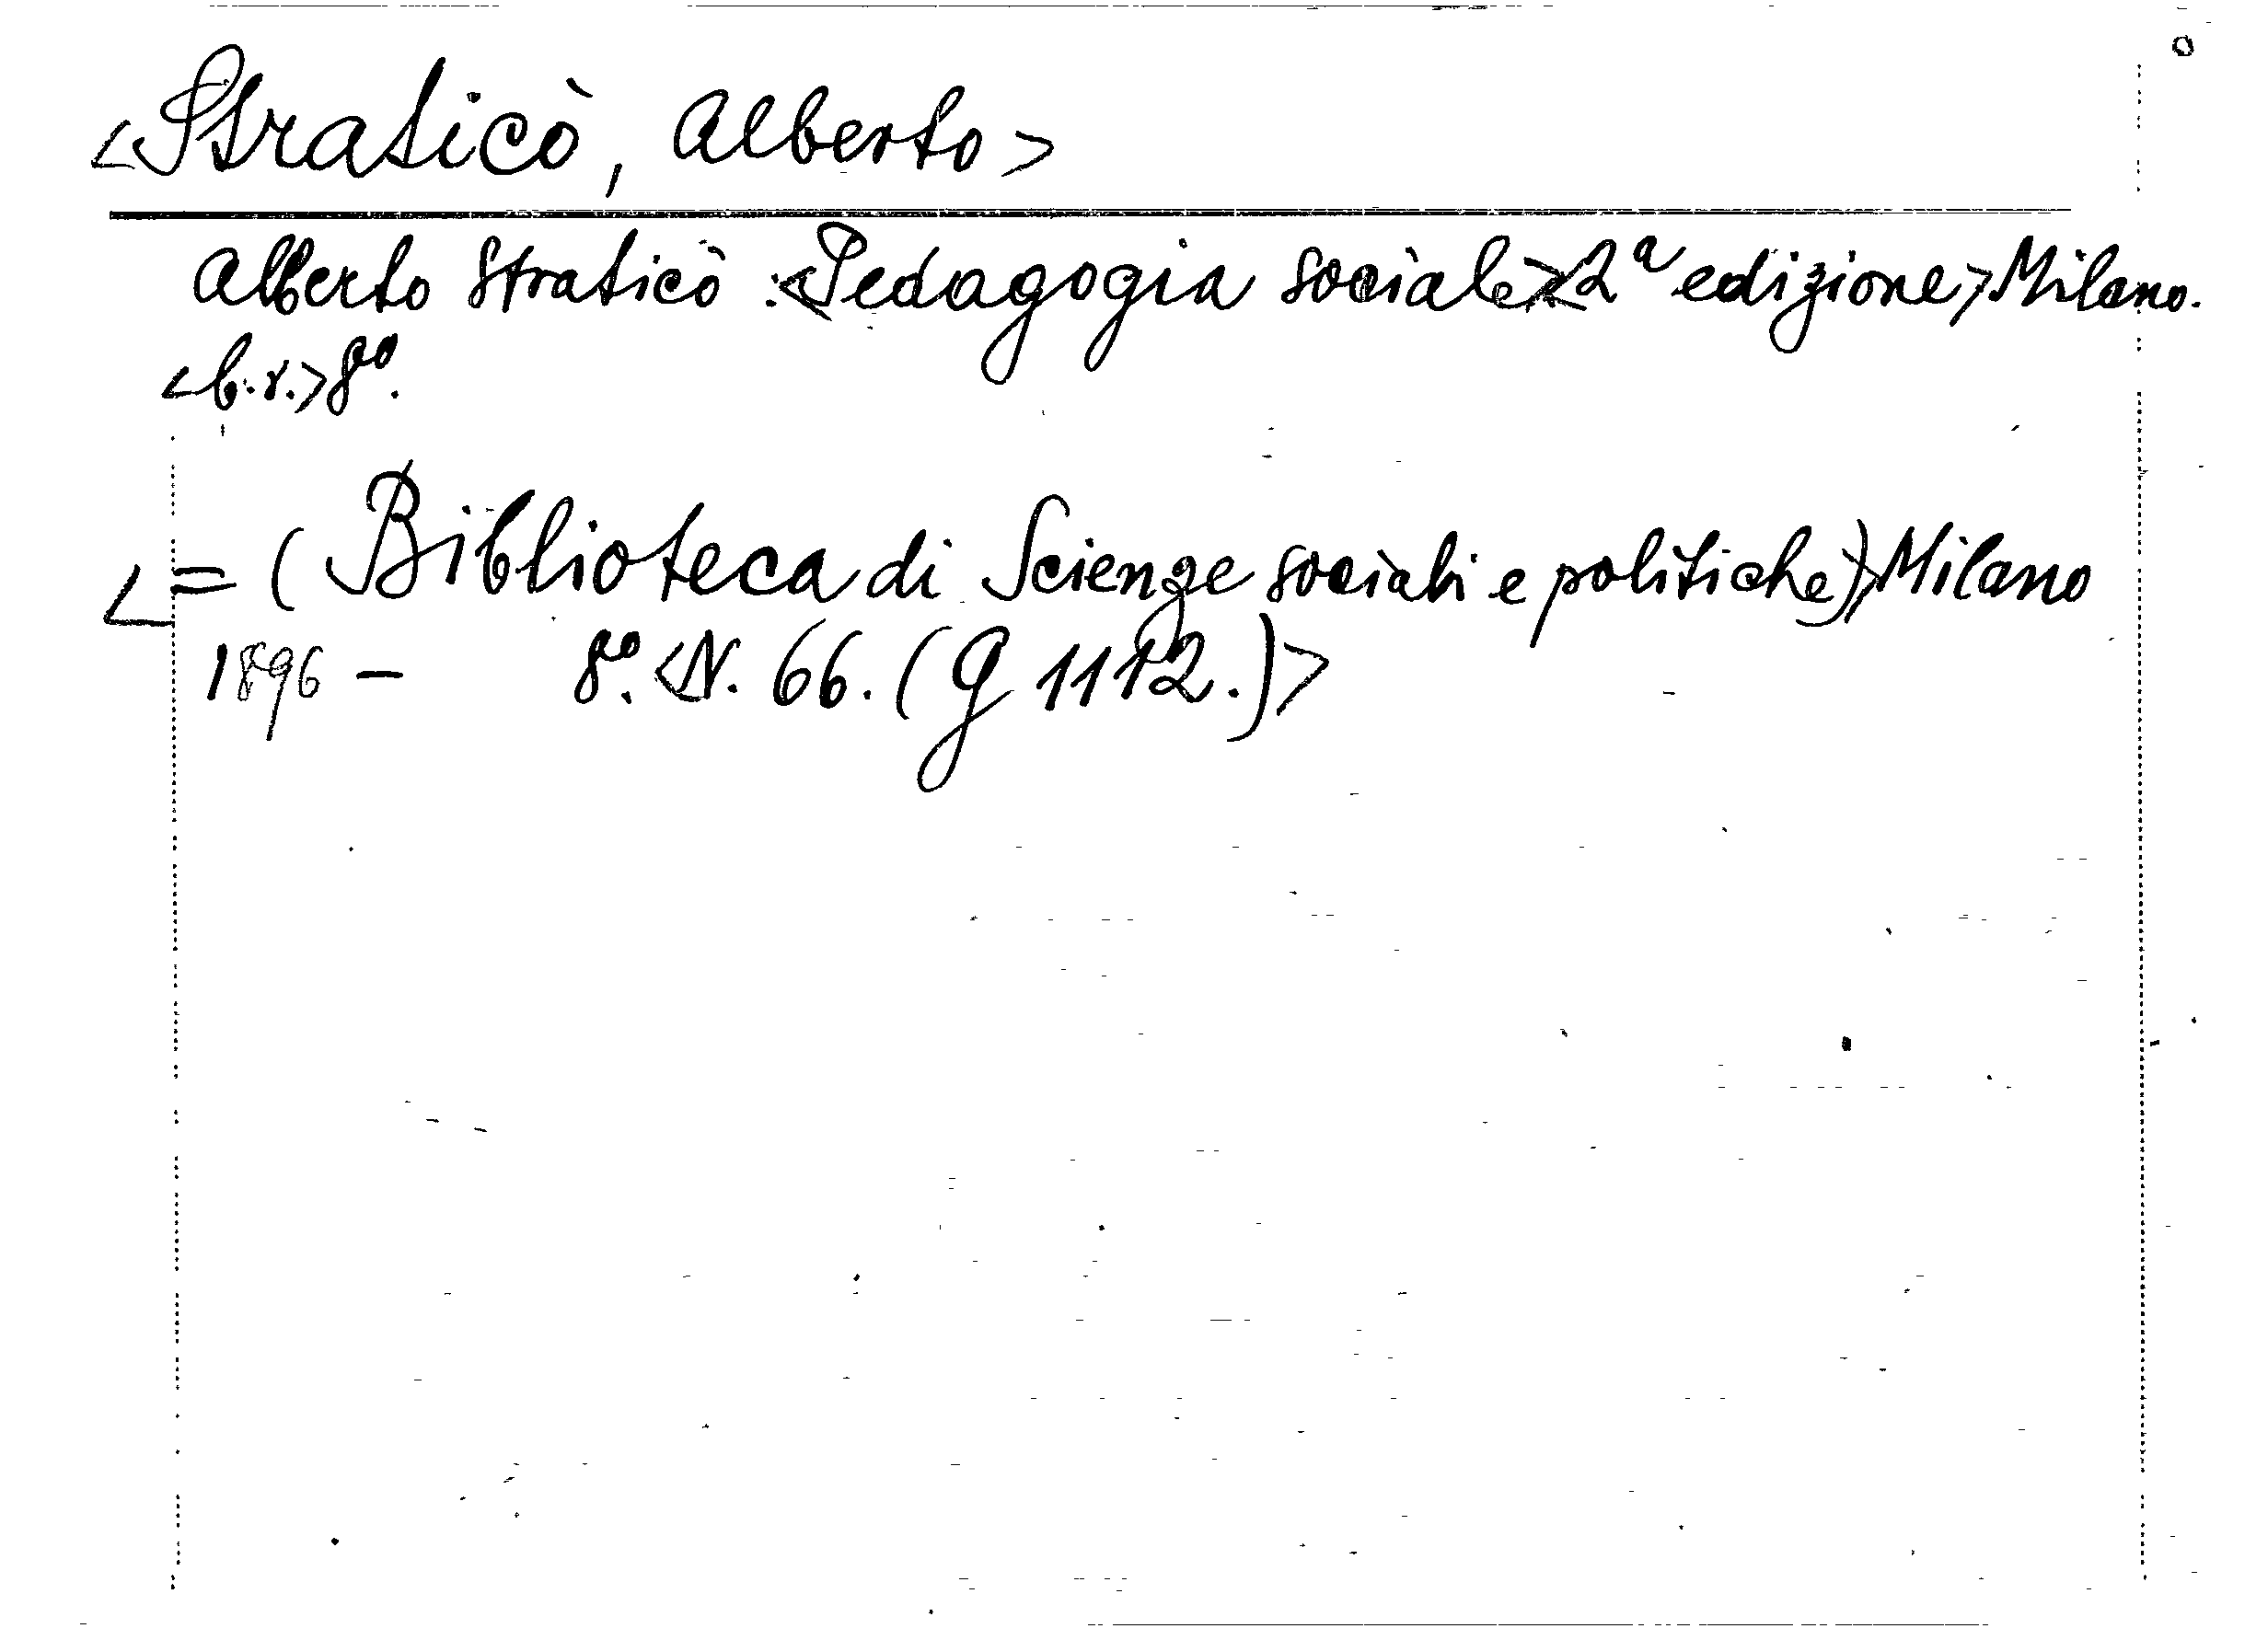 <Straticò, Alberto>
Alberto Straticò: <Pedagogia sociale> <2ª edizione> Milano.
<b. r.> 8º.
<= (Biblioteca di Scienze sociali e politiche)> Milano
1896 - 8º. <N. 66. (g 1112.)>